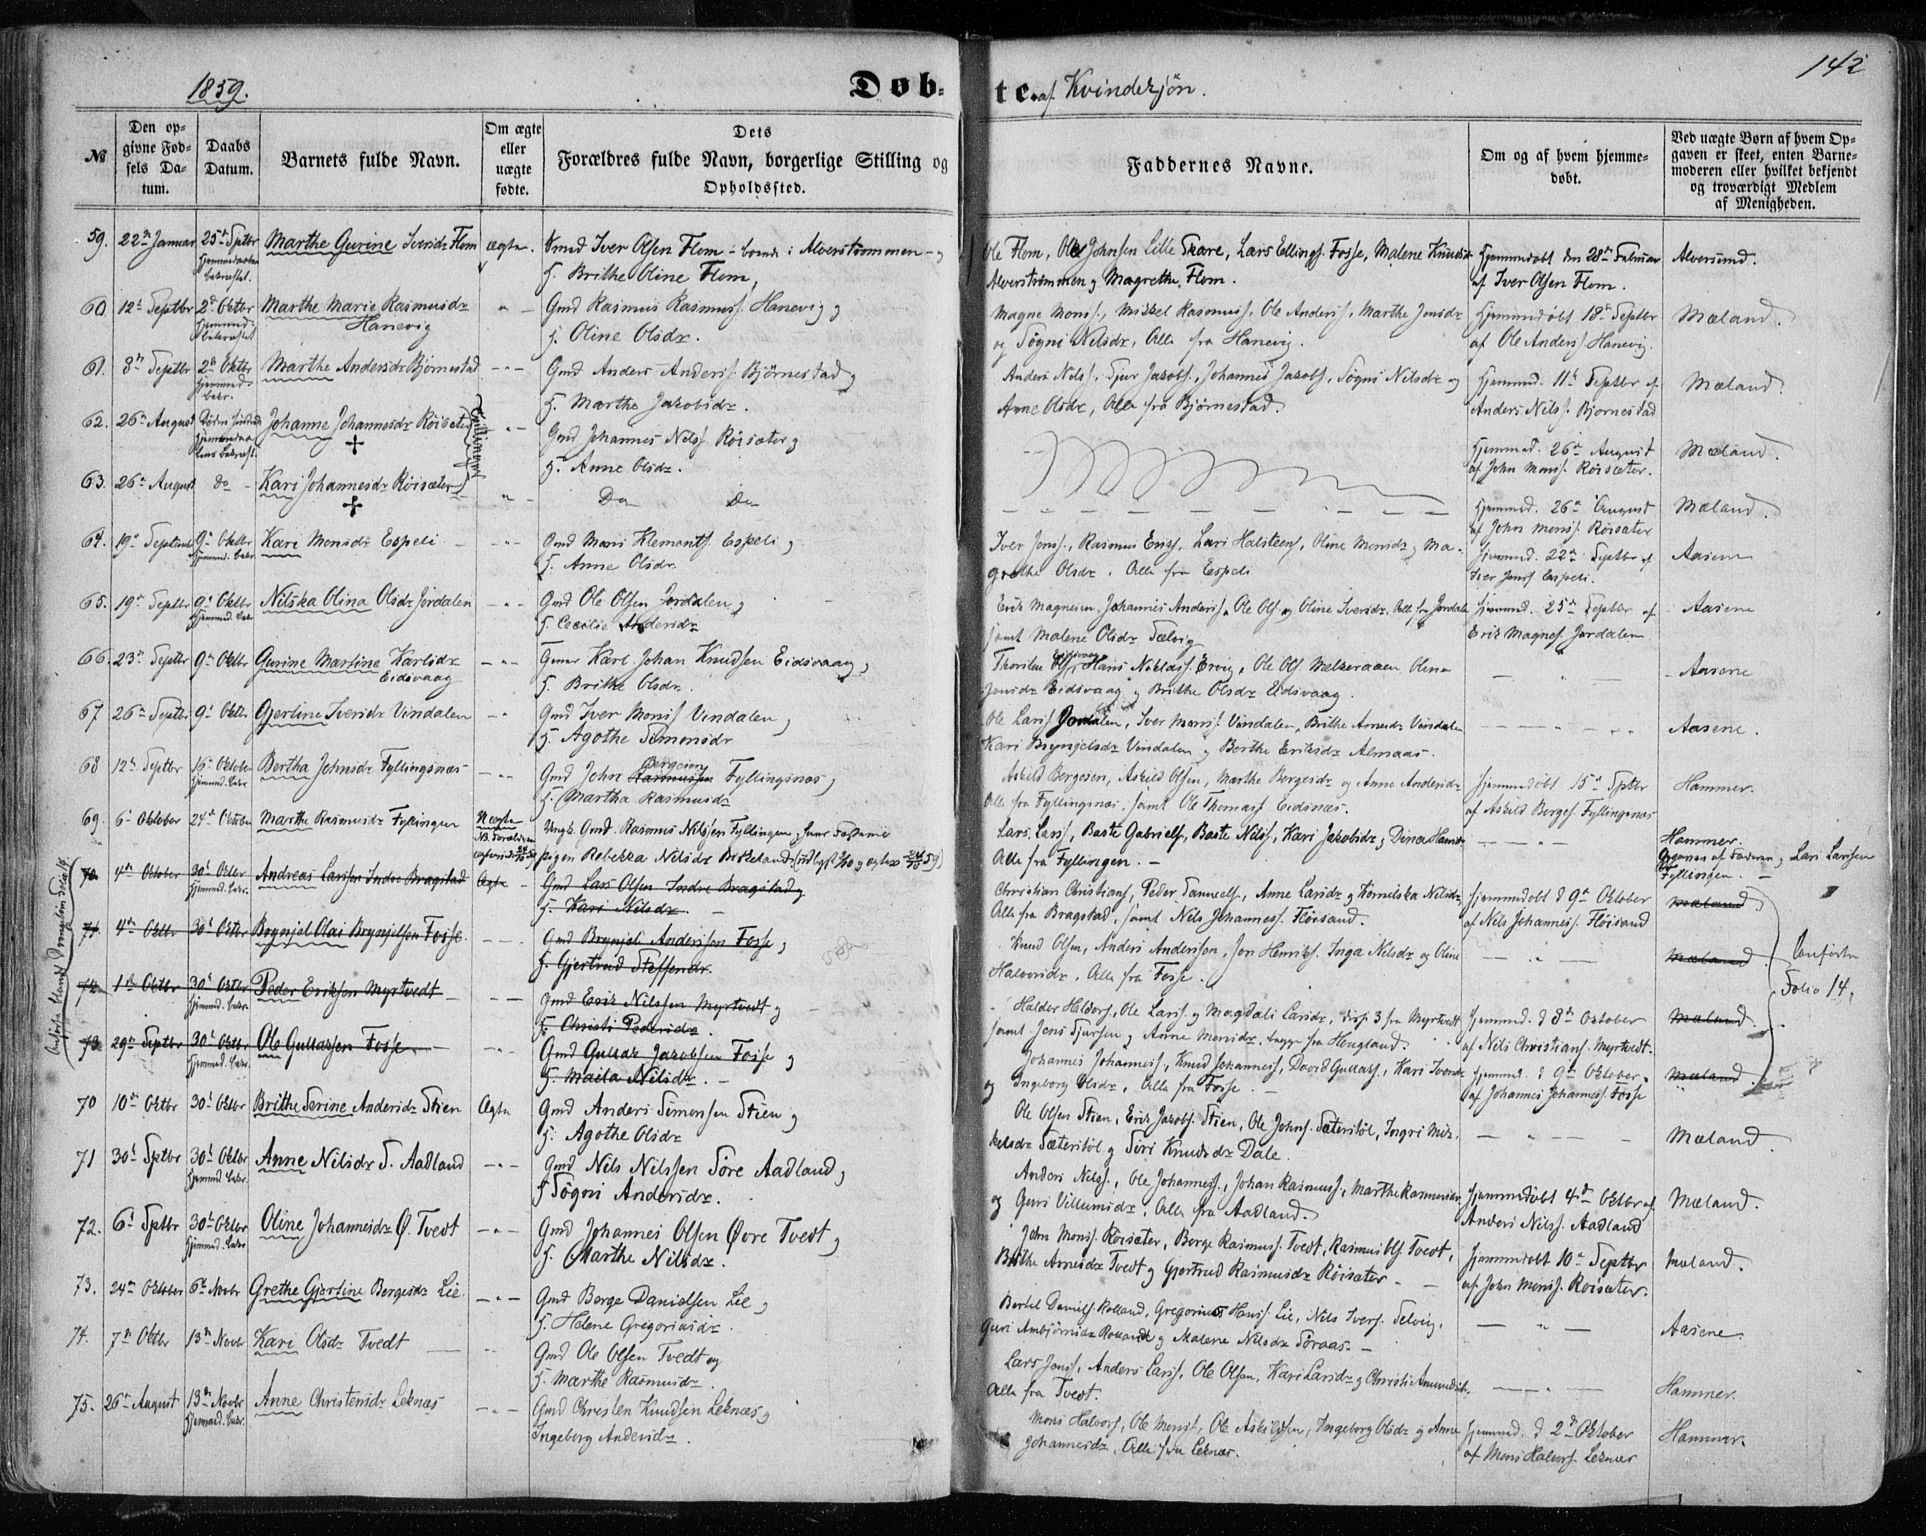 1859.
Døb-
te. af Kvindekjön.
142
№
Den op-
givne Fød-
sels Da-
tum.
Daabs
Datum.
Barnets fulde Navn.
Om ægte
eller
uægte
fødte.
Dets
Forældres fulde Navn, borgerlige Stilling og
Opholdssted.
Faddernes Navne.
Om og af hvem hjemme-
døbt.
Ved uægte Børn af hvem Op-
gaven er skeet, enten Barne-
moderen eller hvilket bekjendt
og troværdigt Medlem
af Menigheden.
59. 22de Januar 25de Sptbr Marthe Gurine Iversdr Flom ægte. Gmd Iver Olsen Flom - boende i Alverströmmen - og
H. Brithe Oline Flom,
Ole Flom, Ole Johnsen Lille Skare, Lars Ellingss. Fosse, Malene Knudsdr
Alverströmmen og Magrethe Flom.
Hjemmedöbt den 28de Februar
af Iver Olsen Flom.
Alversund.
60. 12t Septbr 2d Oktbr Marthe Marie Rasmusdr
Hanevig
Gmd Rasmus Rasmuss. Hanevig og
H. Oline Olsdr.
Magne Monss., Mikkel Rasmuss., Ole Anderss., Marthe Jonsdr
og Sögni Nilsdr, Alle fra Hanevig.
Hjemmedöbt 18de Septbr
af Ole Anderss. Hanevig.
Mæland.
61. 8de Septbr 2d Oktbr Marthe Andersdr Björnestad - " - Gmd Anders Anderss. Björnestad og
H. Marthe Jakobsdr.
Anders Nilss., Sjur Jacobs., Johannes Jacobs., Sögni Nilsdr og
Anne Olsdr, Alle fra Björnestad.
Hjemmed. 11t Septbr af
Anders Nilss. Björnestad
Mæland.
62. 26de August Johanne Johannesdr Röisæter
Tvillinger
Gmd Johannes Nilss. Röisæter og
H. Anne Olsdr.
Hjemmed. 26de August
af John Monss. Röisæter.
Mæland.
63. 26de August do Kari Johannesdr Röisæter - " - Do Do
Hjemmed. 26de August
af John Monss. Röisæter
Mæland.
64. 19de Septbr 9de Oktbr Kari Monsdr Espeli - " - Gmd Mons Klements. Espeli og
H. Anne Olsdr.
Iver Jenss., Rasmus Erikss., Lars Halsteens., Oline Monsdr og Ma-
grethe Olsdr. Alle fra Espeli
Hjemmed. 22de Septbr af
Iver Jenss. Espeli.
Aasene
65. 19de Septbr 9de Oktbr Nilska Olina Olsdr Jordalen - " - Gmd Ole Olsen Jordalen og
H. Cecilie Andersdr
Erik Magnesen, Johannes Anderss., Ole Ols. og Oline Iversdr, Alle fra Jordalen
samt Malene Olsdr Sælvig
Hjemmed. 25de Septbr af
Erik Magness. Jordalen
Aasene
66. 23de Septbr 9de Oktbr Gurine Martine Karlsdr
Eidsvaag
Karl Johan Knudsen Eidsvaag,
H. Brithe Olsdr.
Hans Niklass. Ervig, Ole Ols.
Jensdr Eidsvaag og Brithe Olsdr Eidsvaag.
Aasene
67 26de Septbr 9de Oktbr Gjertine Iversdr Vindalen - " - Gmd Iver Monss Vindalen,
H. Agothe Simonsdr
Ole Larss Jordalen, Iver Monss. Vindalen, Brithe Arnesdr Vindalen
Kari Brynjelsdr Vindalen og Berthe Eriksdr Almaas.
Aasene.
68 12te Septbr 16de Oktober Bertha Johnsdr Fyllingsnæs - " - Gmd John Rasmussen Bergesen Fyllingsnæs,
H. Martha Rasmusdr
Askild Bergesen, Askild Olsen, Marthe Bergesdr og Anne Andersdr
Alle fra Fyllingsnæs, samt Ole Thomass. Eidsnæs.
Hjemmedöbt 15de Sptbr
af Askild Berges. Fyllingsnæs
Hammer.
69. 6te Oktober 24de Oktober Marthe Rasmusdr Fyllingen Uægte
Ungk. Gmd. Rasmus Nilssen Fyllingen,
pigen Rebekka Nilsdr Birkeland
Lars Larss, Baste Gabriels., Baste Nilss., Kari Jakobsdr og Dina Hansdr
Alle fra Fyllingen. -
Hammer.
Opgivet af Faderen og Lars Larssen
Fyllingen.
70. 4de Oktober 30te Oktbr Andreas Larssen Indre Bragstad Ægte Gmd Lars Olsen Indre Bragstad og
H. Kari Nilsdr.
Christian Christians., Peder Samuels., Anne Larsdr og Korneliska Nilsdr,
Alle fra Bragstad, samt Nils Johanness. Flöisand.
Hjemmedöbt d 9de Oktober
af Nils Johanness. Flöisand
Mæland
71. 4de Oktbr 30te Oktbr Brynjel Olai Brynjelsen Fosse. Gmd Brynjel Anderssen Fosse,
H. Gjertrud Steffensdr.
Knud Olsen, Anders Anderssen, Jon Henriks., Inga Nilsdr og Oline
Halvorsdr, Alle fra Fosse.
Mæland.
Anförte
Folio 14.
72. 1ste Oktbr 30te Oktbr Peder Eriksen Myrtvedt Gmd Erik Nilssen Myrtvedt og
H. Christi Pedersdr.
Haldor Haldors., Ole Larss. og Magdali Larsdr, disse 3 fra Myrtvedt
samt Jens Sjursen og Anne Monsdr, begge fra Hougland.
Hjemmed. d 8de Oktober
af Nils Christians. Myrtvedt.
Mæland
73. 29de Septbr 30te Oktbr Ole Gullaksen Fosse. Gmd Gullak Jacobsen Fosse og
H. Maila Nilsdr.
Johannes Johanness., Knud Johanness., David Gullaks., Kari Iversdr
og Ingeborg Olsdr, Alle fra Fosse.
Hjemmed. d 9de Oktober
af Johannes Johanness. Fosse
Mæland
70 10de Oktbr 30te Oktbr Brithe Serine Andersdr Stien Ægte Gmd Anders Simonsen Stien og
H. Agothe Olsdr
Ole Olsen Stien, Erik Jacobs. Stien, Ole Johns. Sæterstöl, Ingri Mik-
kelsdr Sæterstöl og Siri Knudsdr Dale.
Mæland
71 30te Sptbr 30te Oktbr Anne Nilsdr S. Aadland - " - Gmd Nils Nilssen Söre Aadland,
H. Sögni Andersdr.
Anders Nilss., Ole Johanness., Johan Rasmuss., Marthe Rasmusdr
og Guri Villumsdr, Alle fra Aadland.
Hjemmedöbt 4de Oktbr af
Anders Nilss. Aadland
Mæland.
72. 6te Sptbr 30te Oktbr Oline Johannesdr Ø. Tvedt - " - Gmd Johannes Olsen Øvre Tvedt,
H. Marthe Nilsdr.
John Monss. Röisæter, Berge Rasmuss. Tvedt, Rasmus Ols. Tvedt,
Brithe Arnesdr Tvedt og Gjertrud Rasmusdr Röisæter
Hjemmedöbt 10de Septbr
af John Monss. Röisæter.
Mæland.
73. 24de Oktober 6te Novbr Grethe Gjertine Bergesdr Lie - " - Gmd Berge Danielsen Lie,
H. Helene Gregoriusdr.
Bertel Daniels. Rolland, Gregorius Hanss. Lie, Nils Ivers. Selvig,
Guri Ambjörnsdr Rolland og Malene Nilsdr Söraas. -
Aasene
74. 7de Oktbr 13de Novbr Kari Olsdr Tvedt Gmd Ole Olsen Tvedt og
H. Marthe Rasmusdr.
Lars Jenss., Anders Larss., Ole Olsen, Kari Larsdr og Christi Amundsdr.
Alle fra Tvedt.
Hammer.
75. 26de August 13de Novbr Anne Christensdr Leknæs - " - Gmd Christen Knudsen Leknæs,
Ingeborg Andersdr.
Mons Halvors., Ole Monss., Ole Askildsen, Ingeborg Olsdr og Anne
Johannesdr. Alle fra Leknæs.
Hjemmed. d 2de Oktober
af Mons Halvors. Leknæs
Hammer.